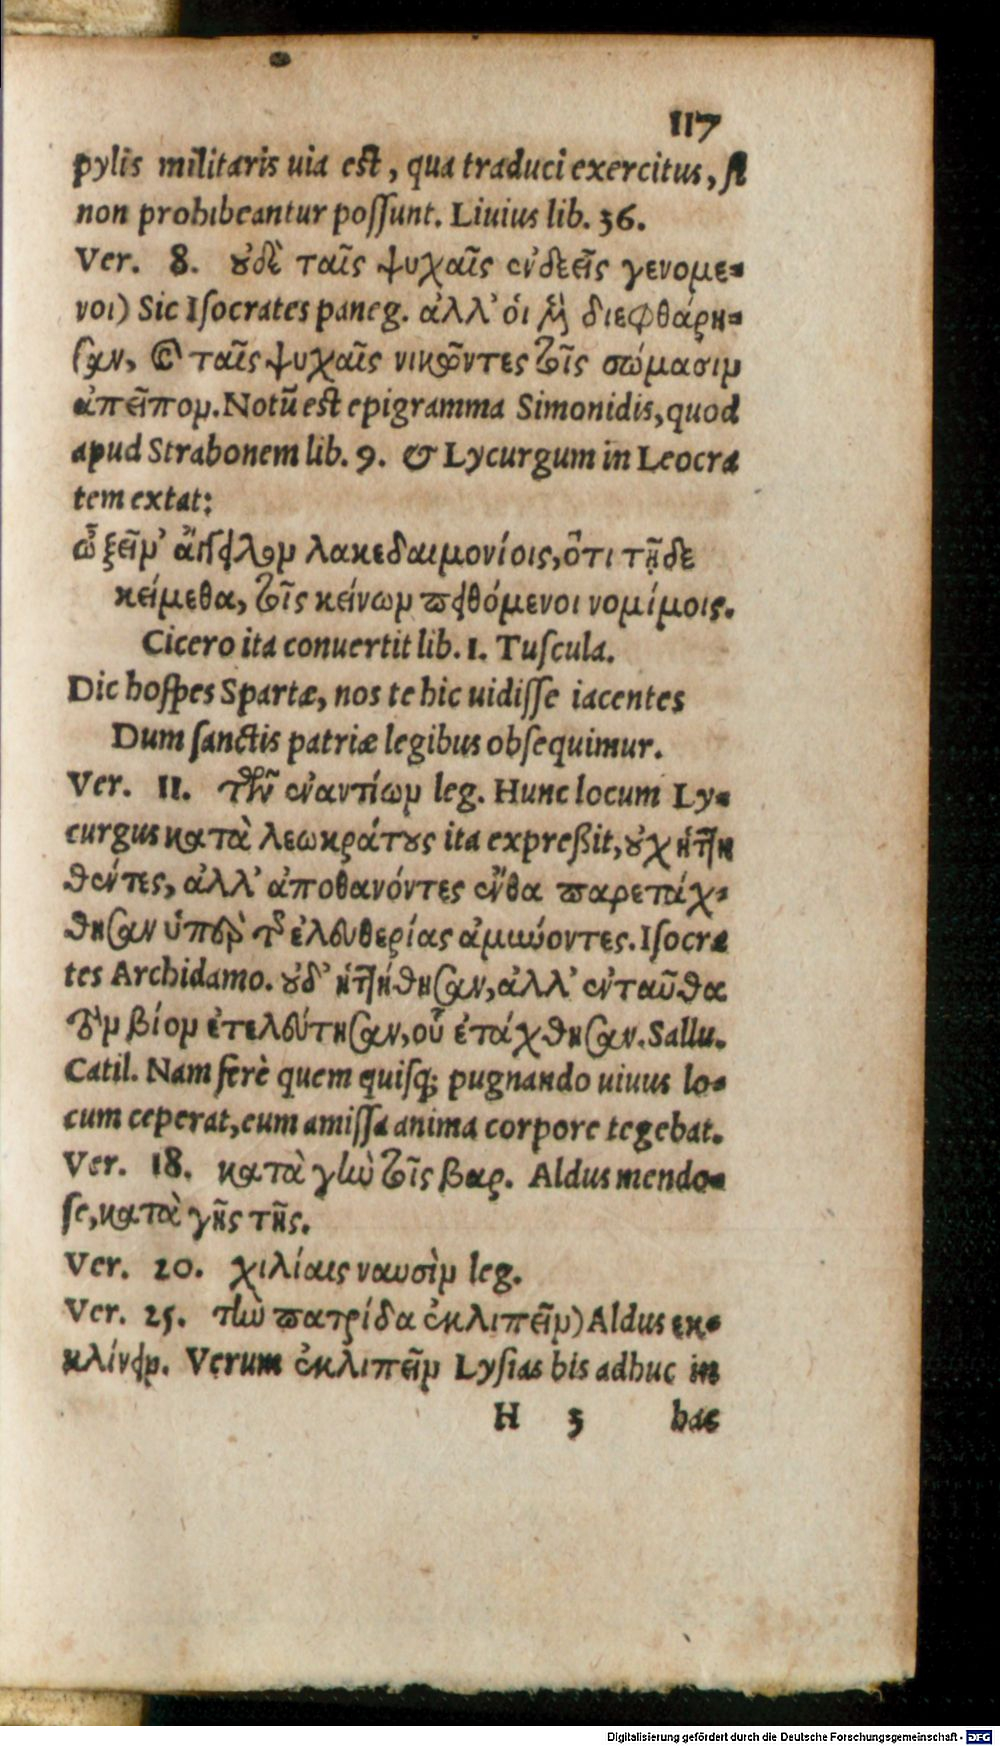 117
pylis militaris uia est, qua traduci exercitus, si
non prohibeantur possunt. Liuius lib. 36.
Ver. 8. οὐδὲ ταῖς ψυχαῖς ἐνδεεῖς γενομε-
νοι) Sic Isocrates paneg. ἀλλ' ὁι μὲν διεφθάρη-
σαν, καὶ ταῖς ψυχαῖς νικῶντες τοῖς σώμασιν
ἀπεῖπον. Notũ est epigramma Simonidis, quod
apud Strabonem lib. 9. & Lycurgum in Leocra
tem extat:
ὦ ξεῖν' ἄγγειλον λακεδαιμονίοις, ὅτι τῇδε
κείμεθα, τοῖς κείνων πειθόμενοι νομίμοις.
Cicero ita conuertit lib. 1. Tuscula.
Dic hospes Spartæ, nos te hic uidisse iacentes
Dum sanctis patriæ legibus obsequimur.
Ver. 11. τῶν ἐναντίων leg. Hunc locum Ly-
curgus κατὰ λεωκράτους ita expreßit, οὐχ ἡττη
θέντες, ἀλλ' ἀποθανόντες ἔνθα παρετάχ-
θησαν ὑπὲρ τῆς ἐλευθερίας ἀμύνοντες. Isocra
tes Archidamo. οὐδ' ἡττήθησαν, ἀλλ' ἐνταῦθα
τὸν βίον ἐτελεύτησαν, οὗ ἐτάχθησαν. Sallu.
Catil. Nam ferè quem quisq; pugnando uiuus lo-
cum ceperat, eum amissa anima corpore tegebat.
Ver. 18. κατὰ γῆν τοῖς βαρ. Aldus mendo-
se, κατὰ γῆς τῆς.
Ver. 20. χιλίαις ναυσὶν leg.
Ver. 25. τὴν πατρίδα ἐκλιπεῖν) Aldus εκ-
κλίνειν. Verum ἐκλιπεῖν Lysias bis adhuc in
H 3 hac
Digitalisierung gefördert durch die Deutsche Forschungsgemeinschaft - DFG